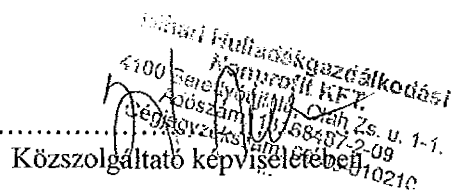 Bihari Hulladékgazdálkodási
Nonprofit KFT.
4100 Berettyóújfalu, Oláh Zs. u. 1-1.
Adószám: 68487-2-09
Cégjegyzékszám: 010210
Közszolgáltató képviseletében